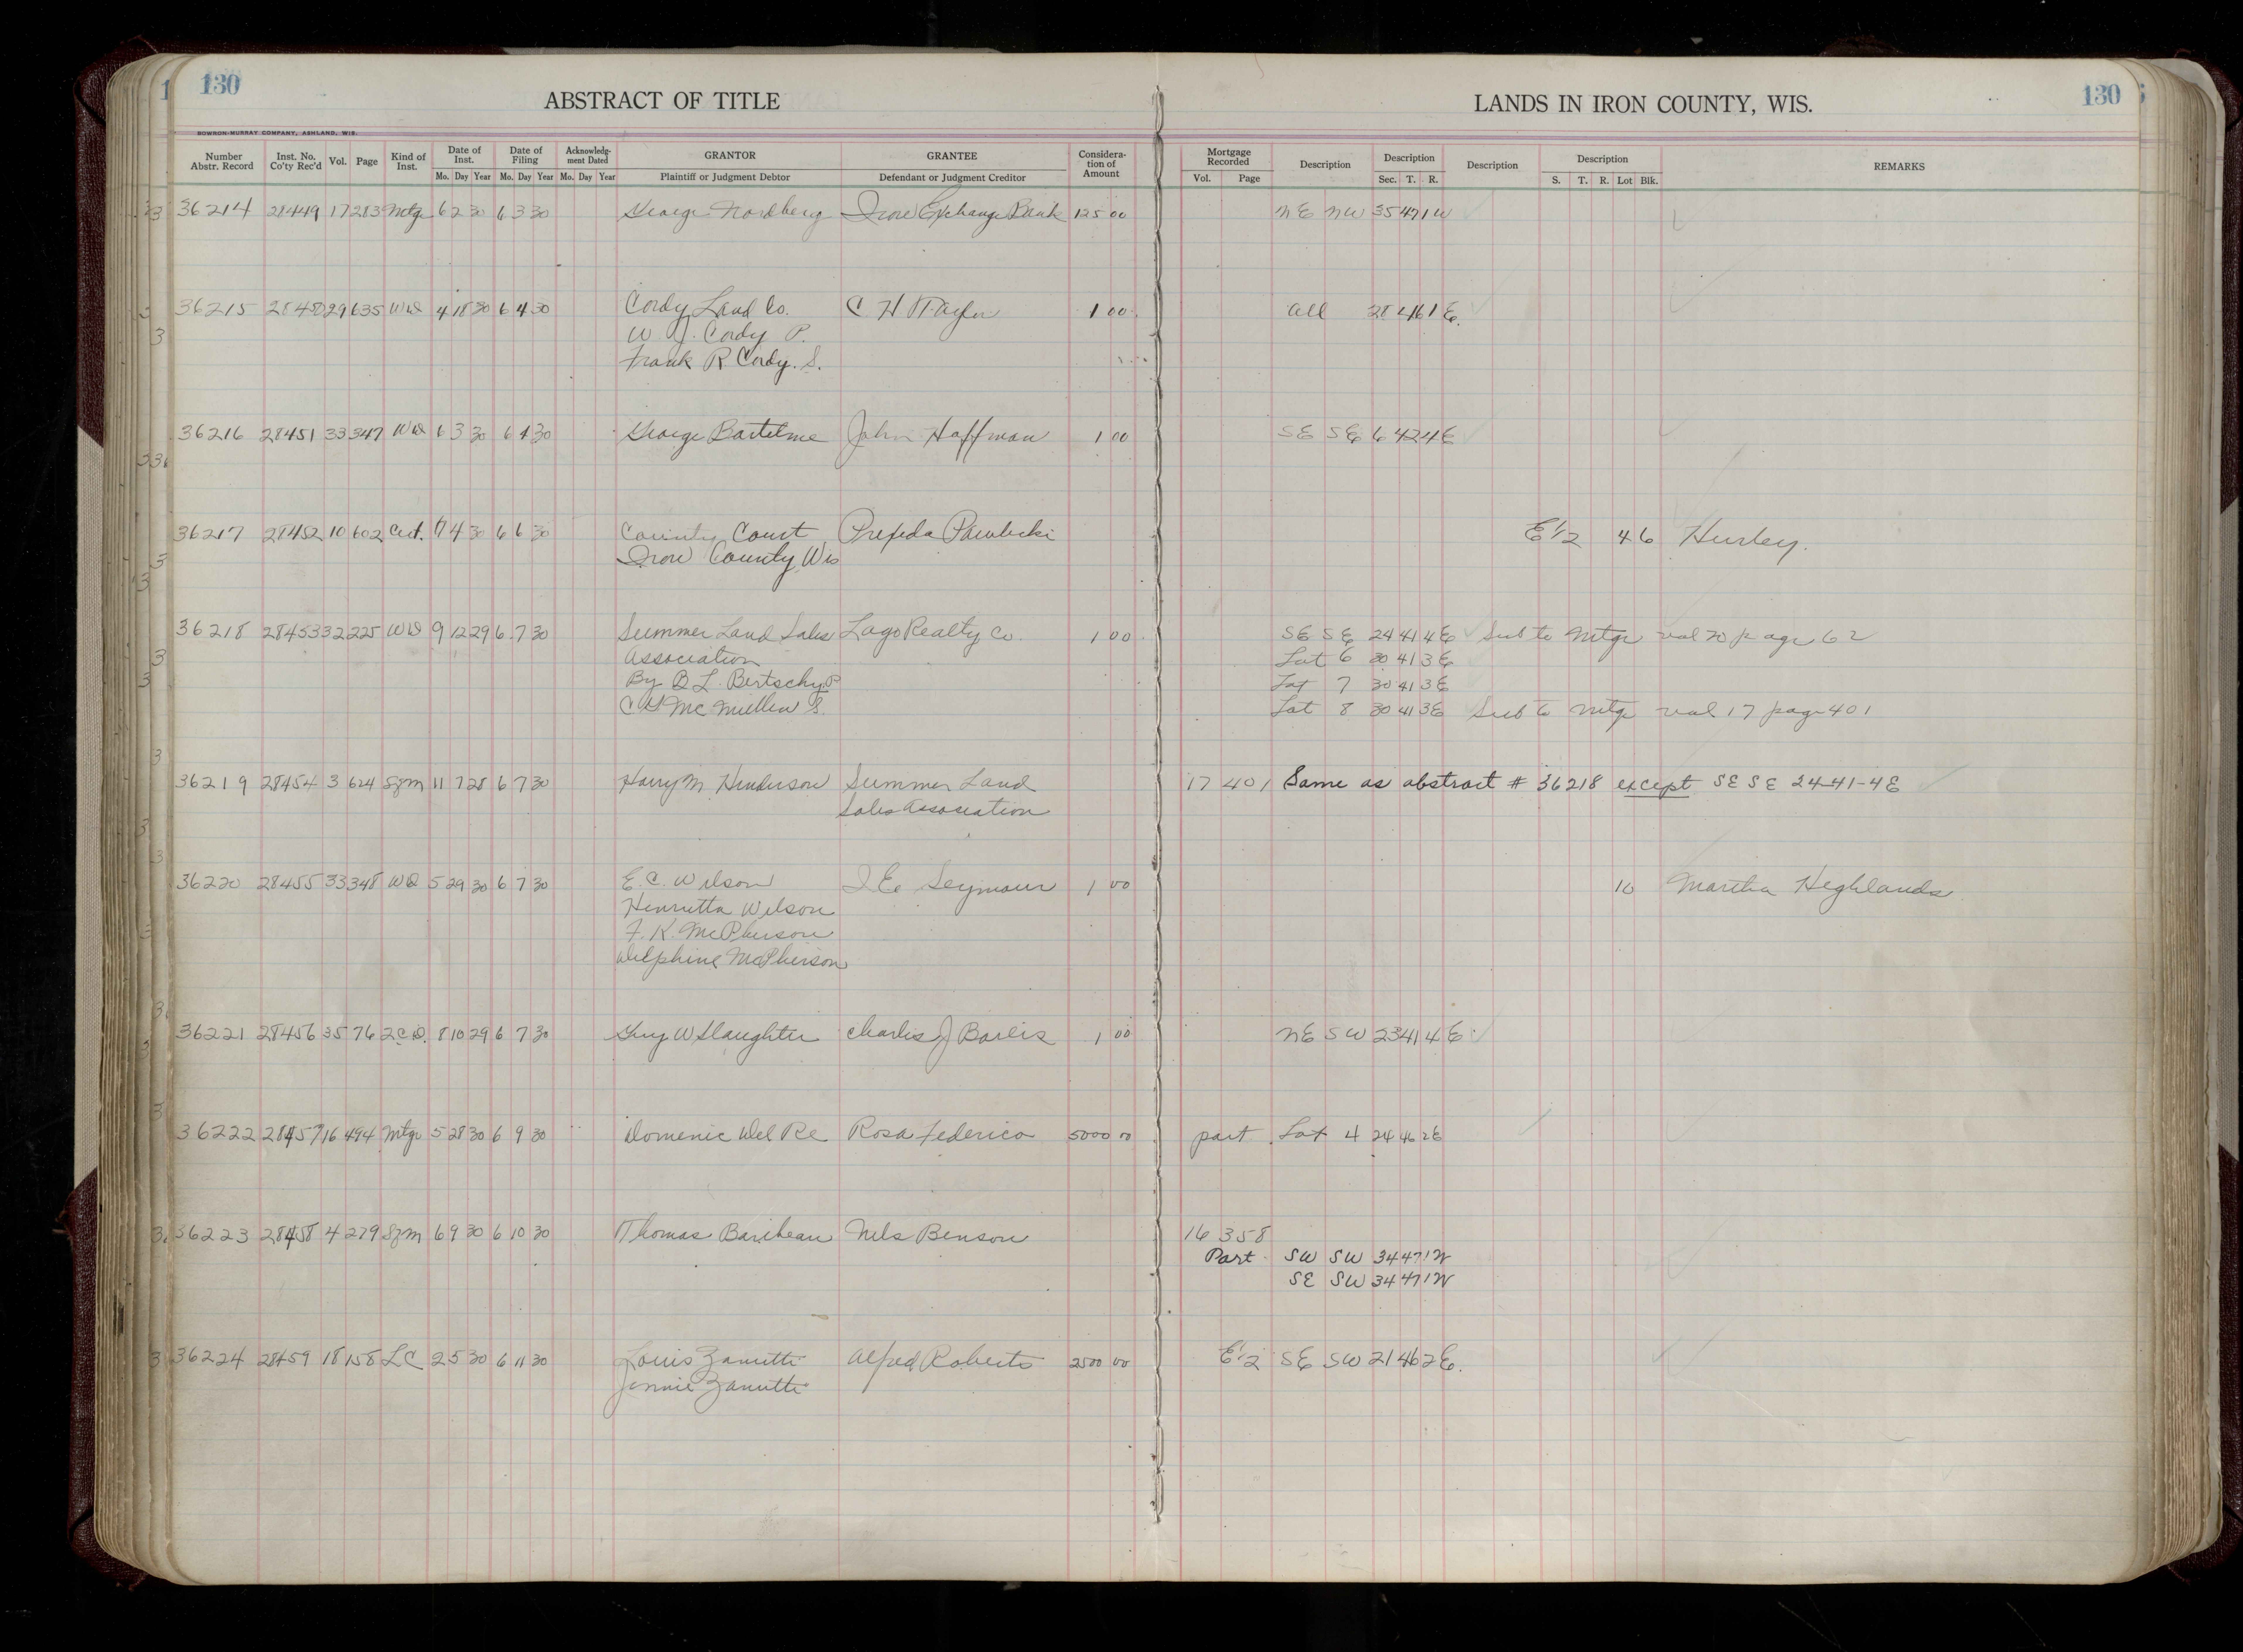 130
ABSTRACT OF TITLE
LANDS IN IRON COUNTY, WIS.
130
BOWRON-MURRAY COMPANY, ASHLAND, WIS.
Number Abstr. Record Inst. No. Co'ty Rec'd Vol. Page Kind of Inst. Date of Inst. Mo. Day Year Date of Filing Mo. Day Year Acknowledg-ment Dated Mo. Day Year GRANTOR Plaintiff or Judgment Debtor GRANTEE Defendant or Judgment Creditor Considera-tion of Amount Mortgage Recorded Vol. Page Description Description Sec. T. R. Description Description S. T. R. Lot Blk. REMARKS
36214 28449 17 283 Mtge 6 2 30 6 3 30 George Nordberg Iron Exchange Bank 125 00 NE NW 35 47 1W
36215 28450 29 635 WD 4 18 30 6 4 30 Cordy Land Co. C H 1 00 All 28 46 1 E.
W J. Cordy P.
Frank R Cordy. S.
36216 28451 33 347 WD 6 3 30 6 4 30 George Bartelme John Hoffman 1 00 SE SE 6 42 4E
36217 28452 10 602 Cert. 7 4 30 6 6 30 County Court E1/2 46 Hurley.
Iron County Wis
36218 28453 32 225 WD 9 12 29 6 7 30 Summer Land Sales Lago Realty Co. 1 00 SE SE 24 41 4E Sub to Mtge vol 20 page 62
Association Lot 6 30 41 3E
By B L. Bertschy P Lot 7 30 41 3E
C G McMullen S. Lot 8 30 41 3E Sub to Mtge vol 17 page 401
36219 28454 3 624 Szm 11 7 28 6 7 30 Harry M Henderson Summer Land 17 401 Same as abstract # 36218 except SE SE 24-41-4E
Sales Association
36220 28455 33 348 WD 5 29 30 6 7 30 E. C. Wilson I E. Seymour 1 00 10 Martha Highlands
Henrietta Wilson
F. K. McPherson
Delphine McPherson
36221 28456 35 76 2CD. 8 10 29 6 7 30 Guy W Slaughter Charles J Barlis 1 00 NE SW 23 41 4E
36222 28457 16 494 Mtge 5 28 30 6 9 30 Domenic Del Re Rosa Federico 5000 00 part Lot 4 24 46 2E
36223 28458 4 279 Szm 6 9 30 6 10 30 Thomas Baribeau Nels Benson 16 358
Part SW SW 34 47 1W
SE SW 34 47 1W
36224 28459 18 158 LC 2 5 30 6 11 30 Louis Zanutti Alfred Roberts 2500 00 E1/2 SE SW 21 46 2E.
Jennie Zanutti